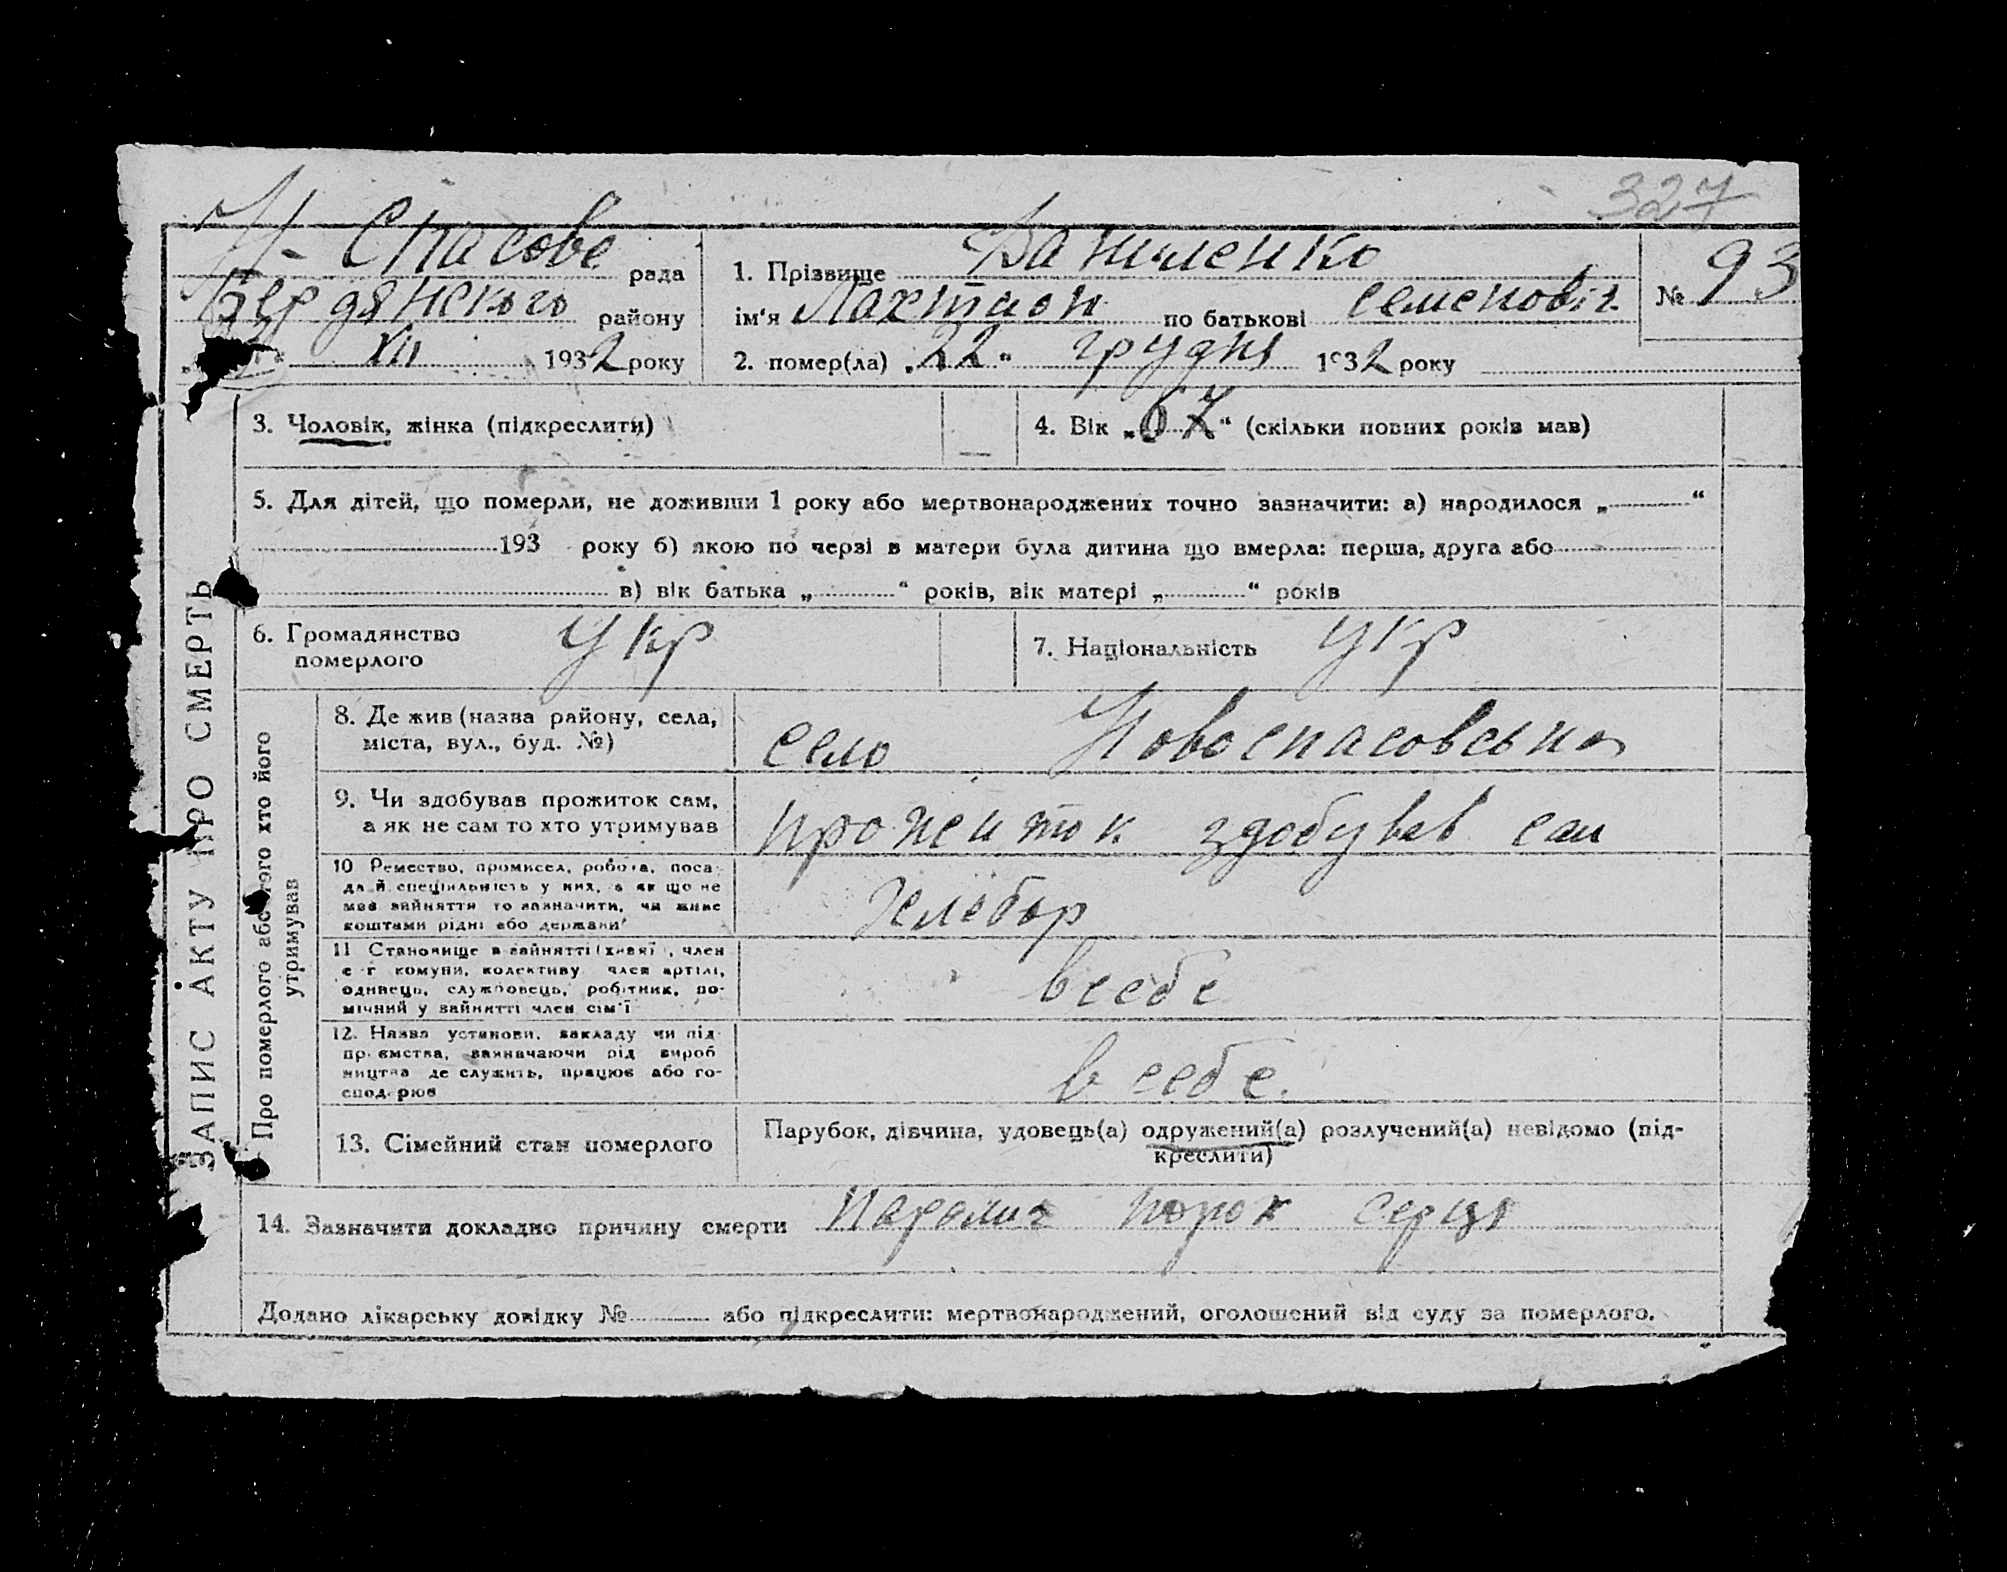 327
Н-Спасове рада
Бердянського району
" XII 1932 року
1. Прізвище Даниленко
ім'я Лахтион по батькові семеновіч
№ 93
2. помер(ла) „22" грудня 1932 року
3. Чоловік, жінка (підкреслити)
4. Вік „67" (скільки повних років мав)
5. Для дітей, що померли, не доживши 1 року або мертвонароджених точно зазначити: а) народилося „ "
193 року б) якою по черзі в матери була дитина що вмерла: перша, друга або
в) вік батька „ " років, вік матері „ " років
6. Громадянство
померлого
укр
7. Національність укр
ЗАПИС АКТУ ПРО СМЕРТЬ
Про померлого або того хто його
утримував
8. Де жив (назва району, села,
міста, вул., буд. №)
село Новоспасовська
9. Чи здобував прожиток сам,
а як не сам то хто утримував
прожиток здобував сам
10 Ремество, промисел, робота, поса-
да й спеціяльність у них, а як що не
мав зайняття то зазначити, чи живе
коштами рідні або держави
хлебор
11 Становище в зайнятті (хазяї, член
с-г комуни, колективу член артілі,
одинець, службовець, робітник, по-
мічний у зайнятті член сім'ї
в себе
12. Назва установи, закладу чи під-
приємства, зазначаючи рід вироб
ництва де служить, працює або го-
сподарює
в себе.
13. Сімейний стан померлого
Парубок, дівчина, удовець(а) одружений(а) розлучений(а) невідомо (під-
креслити)
14. Зазначити докладно причину смерти параліч порок серця
Додано лікарську довідку № або підкреслити: мертвонароджений, оголошений від суду за померлого.